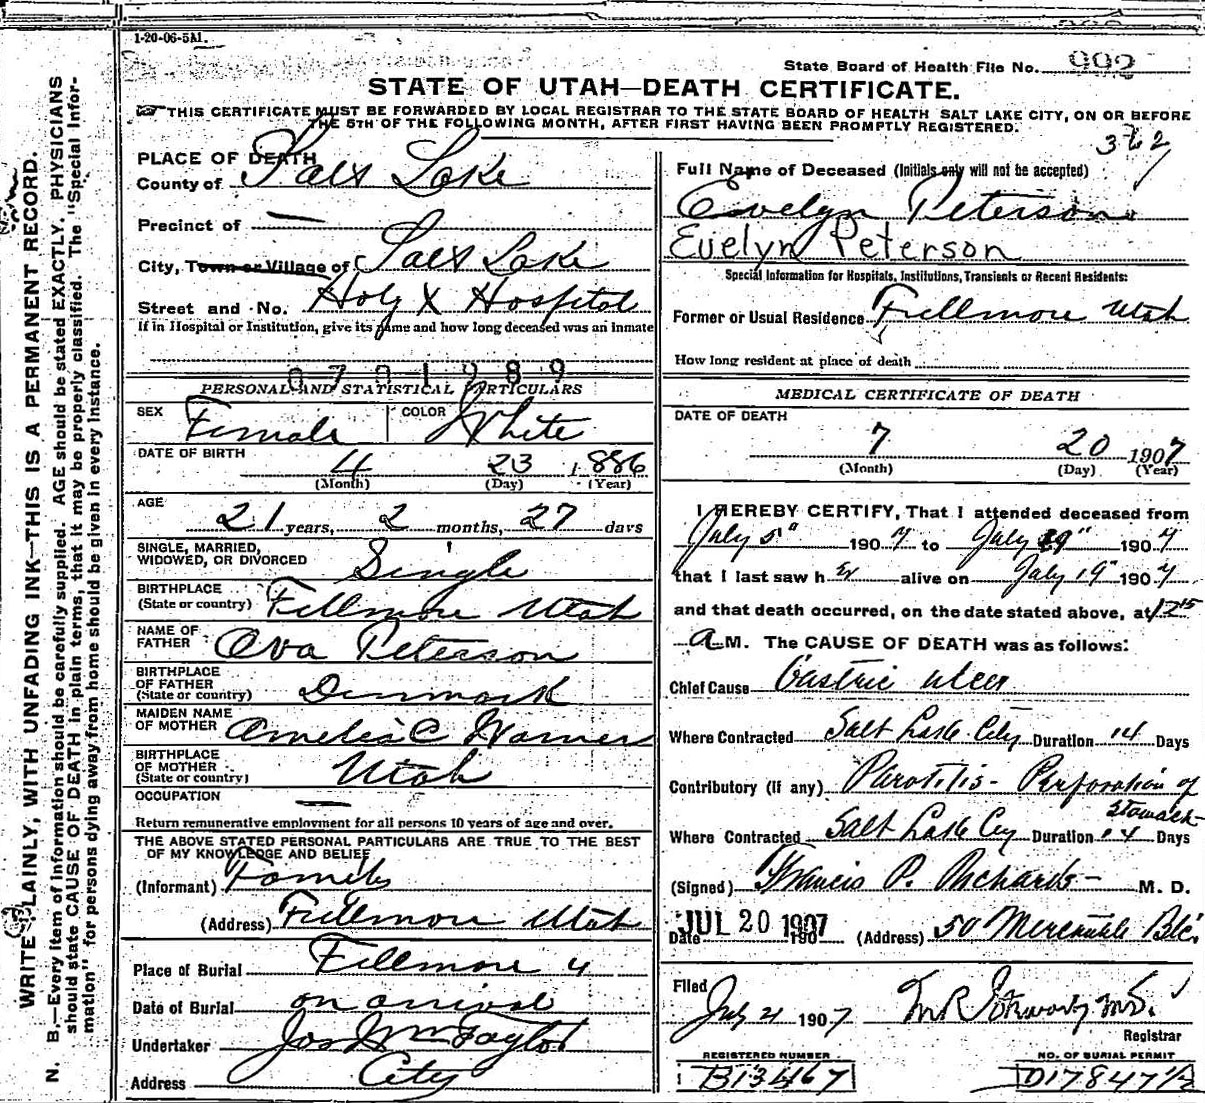 1-20-06-5M.
State Board of Health File No. 992
STATE OF UTAH—DEATH CERTIFICATE.
THIS CERTIFICATE MUST BE FORWARDED BY LOCAL REGISTRAR TO THE STATE BOARD OF HEALTH SALT LAKE CITY, ON OR BEFORE
THE 5TH OF THE FOLLOWING MONTH, AFTER FIRST HAVING BEEN PROMPTLY REGISTERED.
WRITE PLAINLY, WITH UNFADING INK—THIS IS A PERMANENT RECORD.
N. B.—Every item of information should be carefully supplied. AGE should be stated EXACTLY. PHYSICIANS
should state CAUSE OF DEATH in plain terms, that it may be properly classified. The "Special Infor-
mation" for persons dying away from home should be given in every instance.
PLACE OF DEATH
County of Salt Lake
Precinct of —
City, Town or Village of Salt Lake
Street and No. Holy X Hospital
If in Hospital or Institution, give its name and how long deceased was an inmate
0701989
PERSONAL AND STATISTICAL PARTICULARS
SEX Female COLOR White
DATE OF BIRTH 4 23 1886
(Month) (Day) (Year)
AGE 21 years, 2 months, 27 days
SINGLE, MARRIED,
WIDOWED, OR DIVORCED Single
BIRTHPLACE
(State or country) Fillmore Utah
NAME OF
FATHER Ova Peterson
BIRTHPLACE
OF FATHER
(State or country) Denmark
MAIDEN NAME
OF MOTHER Amelia C Warner
BIRTHPLACE
OF MOTHER
(State or country) Utah
OCCUPATION —
Return remunerative employment for all persons 10 years of age and over.
THE ABOVE STATED PERSONAL PARTICULARS ARE TRUE TO THE BEST
OF MY KNOWLEDGE AND BELIEF
(Informant) Family
(Address) Fillmore Utah
Place of Burial Fillmore U
Date of Burial on arrival
Undertaker Jos Wm Taylor
Address City
362
Full Name of Deceased (Initials only will not be accepted)
Evelyn Peterson
Evelyn Peterson
Special Information for Hospitals, Institutions, Transients or Recent Residents:
Former or Usual Residence Fillmore Utah
How long resident at place of death
MEDICAL CERTIFICATE OF DEATH
DATE OF DEATH
7 20 1907
(Month) (Day) (Year)
I HEREBY CERTIFY, That I attended deceased from
July 5" 1907 to July 19" 1907
that I last saw her alive on July 19" 1907
and that death occurred, on the date stated above, at 12 15
A M. The CAUSE OF DEATH was as follows:
Chief Cause Gastric ulcer
Where Contracted Salt Lake City Duration 14 Days
Contributory (if any) Parotitis - Perforation of
Stomach
Where Contracted Salt Lake City Duration 14 Days
(Signed) Francis P. Richards — M. D.
Date JUL 20 1907 190 (Address) 50 Mercantile Blc.
Filed
July 21 1907
Registrar
REGISTERED NUMBER
B13467
NO. OF BURIAL PERMIT
D17847½